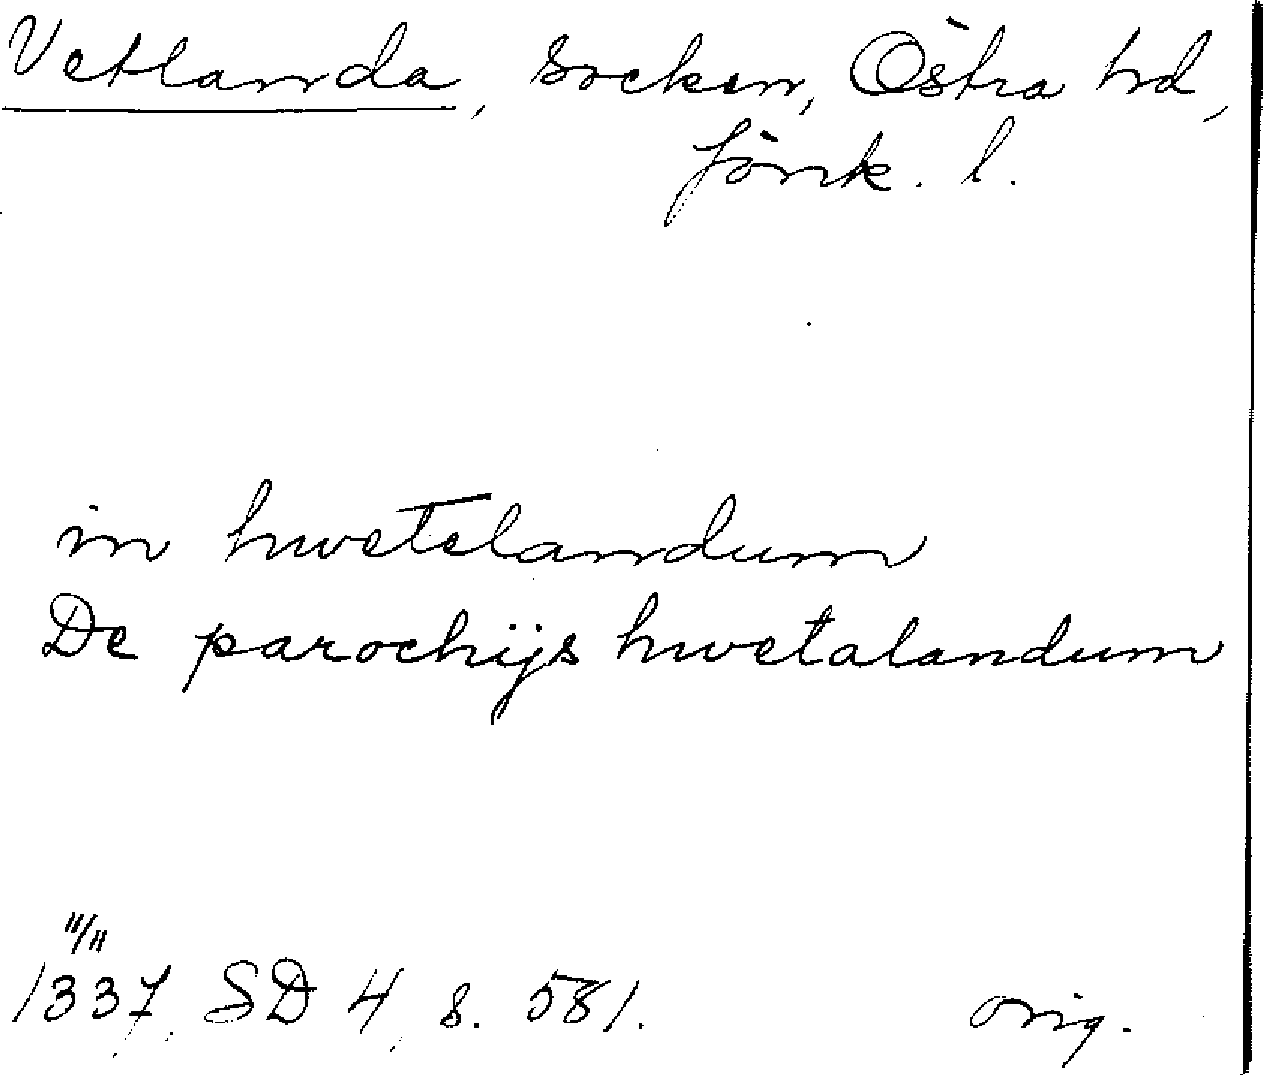 Vetlanda, socken, Östra hd,
Jönk. l.
in hwetelandum
De parochijs hwetalandum
11/11
1337 SD 4 s. 581. orig.